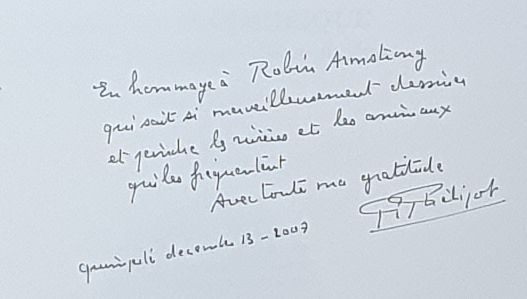 En hommage à Robin Armstrong
qui sait si merveilleusement dessiner
et peindre les rivières et les animaux
qui les fréquentent
Avec toute ma gratitude
decembre 13 - 2007